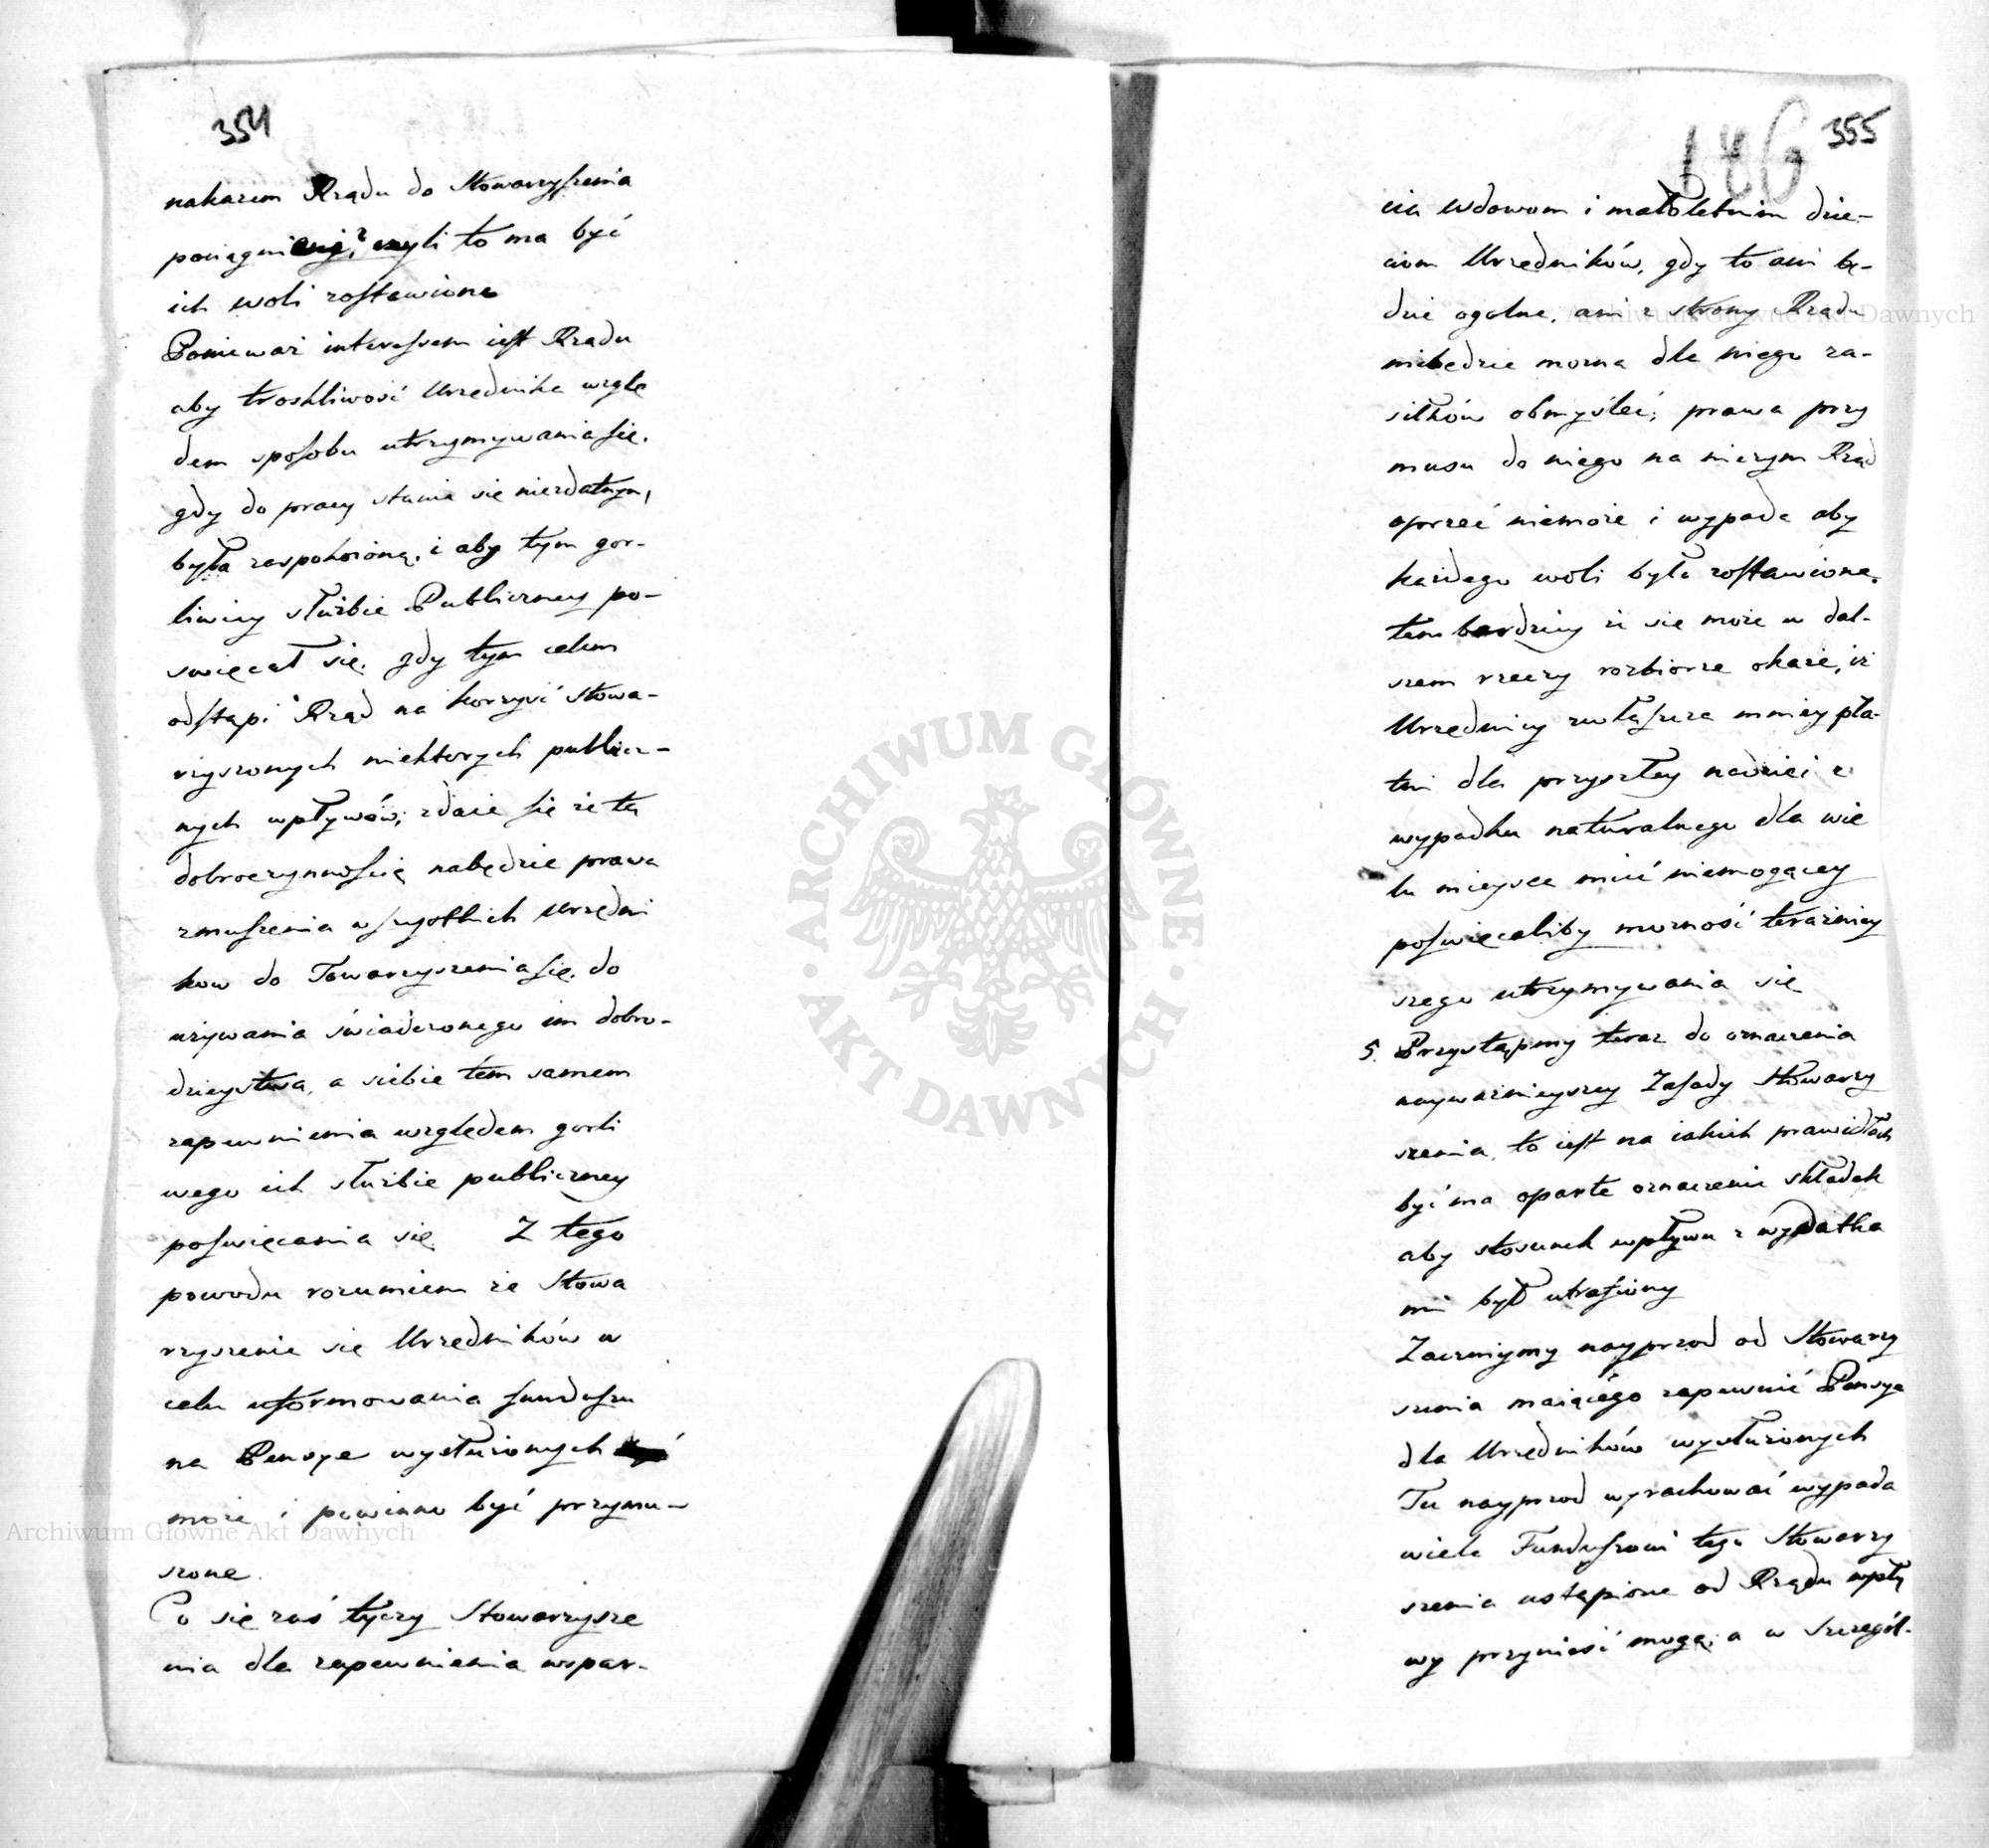 354
nakazem Rządu do Stowarzyszenia
pociągnieni, czyli to ma być
ich woli zostawione
Ponieważ interessem iest Rządu
aby troskliwość Urzędnika wzglę
dem sposobu utrzymywania się,
gdy do pracy stanie się niezdatnym,
była zaspokoioną, i aby tym gor-
liwiey służbie Publiczney po-
swięcał się, gdy tym celem
odstąpi Rząd na korzyść stowa-
rzyszonych niektorych publicz-
nych wpływów; zdaie się że tą
dobroczynnością nabędzie prawa
zmuszenia wszystkich Urzędni
kow do Towarzyszenia się, do
używania świadczonego im dobro-
dzieystwa, a siebie tem samem
zapewnienia względem gorli
wego ich służbie publiczney
poswięcania się. Z tego
powodu rozumiem że Stowa
rzyszenie się Urzędników w
celu uformowania funduszu
na Pensye wysłużonych
może i powinno być przymu-
szone.
Co się zaś tyczy Stowarzysze
nia dla zapewnienia wspar-
186 355
cia wdowom i małoletnim dzie-
ciom Urzędników, gdy to ani bę-
dzie ogolne, ani z strony Rządu
niebędzie można dla niego za-
siłków obmyśleć; prawa przy
musu do niego na niczym Rząd
oprzeć niemoże i wypada aby
każdego woli było zostawione,
tem bardziey że się może w dal-
szem rzeczy rozbiorze okaże, iż
Urzędnicy zwłaszcza mniey pła-
tni dla przyszłey nadziei z
wypadku naturalnego dla wie
lu mieysca mieć niemogącey
poswięcaliby możność teraźniey
szego utrzymywania się
5. Przystąpmy teraz do oznaczenia
nayważnieyszey Zasady Stowarzy
szenia, to iest na iakich prawidłach
być ma oparte oznaczenie składek
aby stosunek wpływu z wydatka
mi był utrafiony
Zaczniymy nayprzod od Stowarzy
szenia maiącego zapewnić Pensye
dla Urzędników wysłużonych
Tu nayprzod wyrachować wypada
wiele Funduszowi tego Stowarzy
szenia ustąpione od Rządu wpły
wy przynieść mogą; a w Szczegól-
ARCHIWUM GŁÓWNE AKT DAWNYCH
Archiwum Główne Akt Dawnych
Archiwum Główne Akt Dawnych